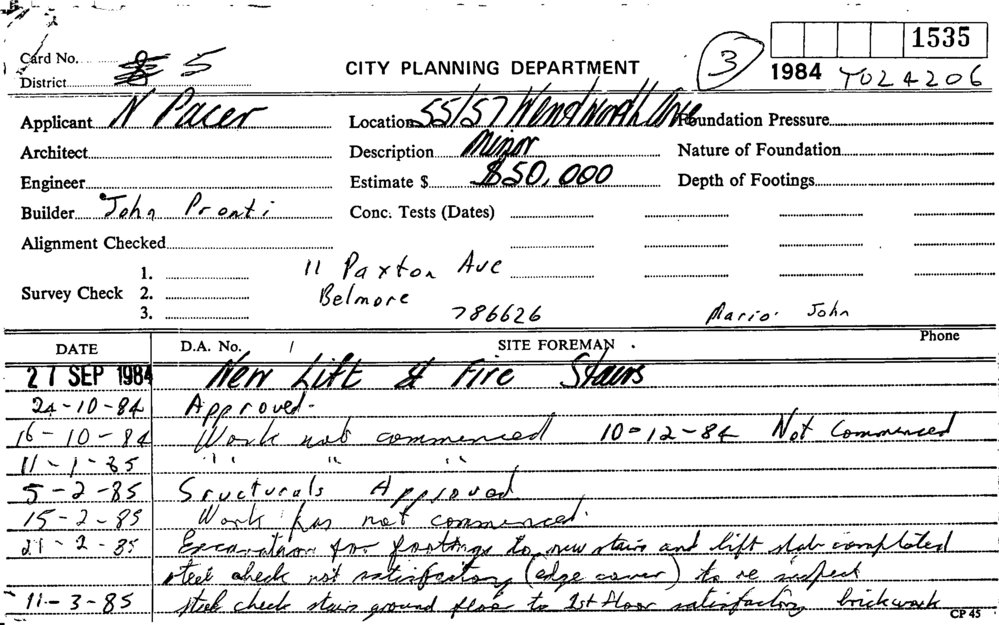 1535
Card No. 5
CITY PLANNING DEPARTMENT
3
1984 TO24206
District
Applicant N Pacer
Location 55/57 Wentworth Ave
Foundation Pressure
Architect
Description Minor
Nature of Foundation
Engineer
Estimate $ $50,000
Depth of Footings
Builder John Pronti
Conc. Tests (Dates)
Alignment Checked
Survey Check 1.
2.
3.
11 Paxton Ave
Belmore
786626
Mario. John
DATE
D.A. No. /
SITE FOREMAN
Phone
27 SEP 1984 New Lift & Fire Stairs
24-10-84 Approved-
16-10-84 Work not commenced 10-12-84 Not Commenced
11-1-85 " " "
5-2-85 Sructurals Approved
15-2-85 Work has not commenced.
21-2-85 Excavation for footings to new stairs and lift slab completed
steel check not satisfactory (edge cover) to re inspect
11-3-85 steel check stairs ground floor to 1st floor satisfactory brickwork
CP 45